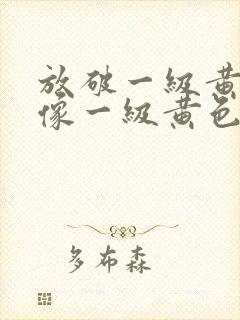 放破一級黃
像一級黃色
多布森